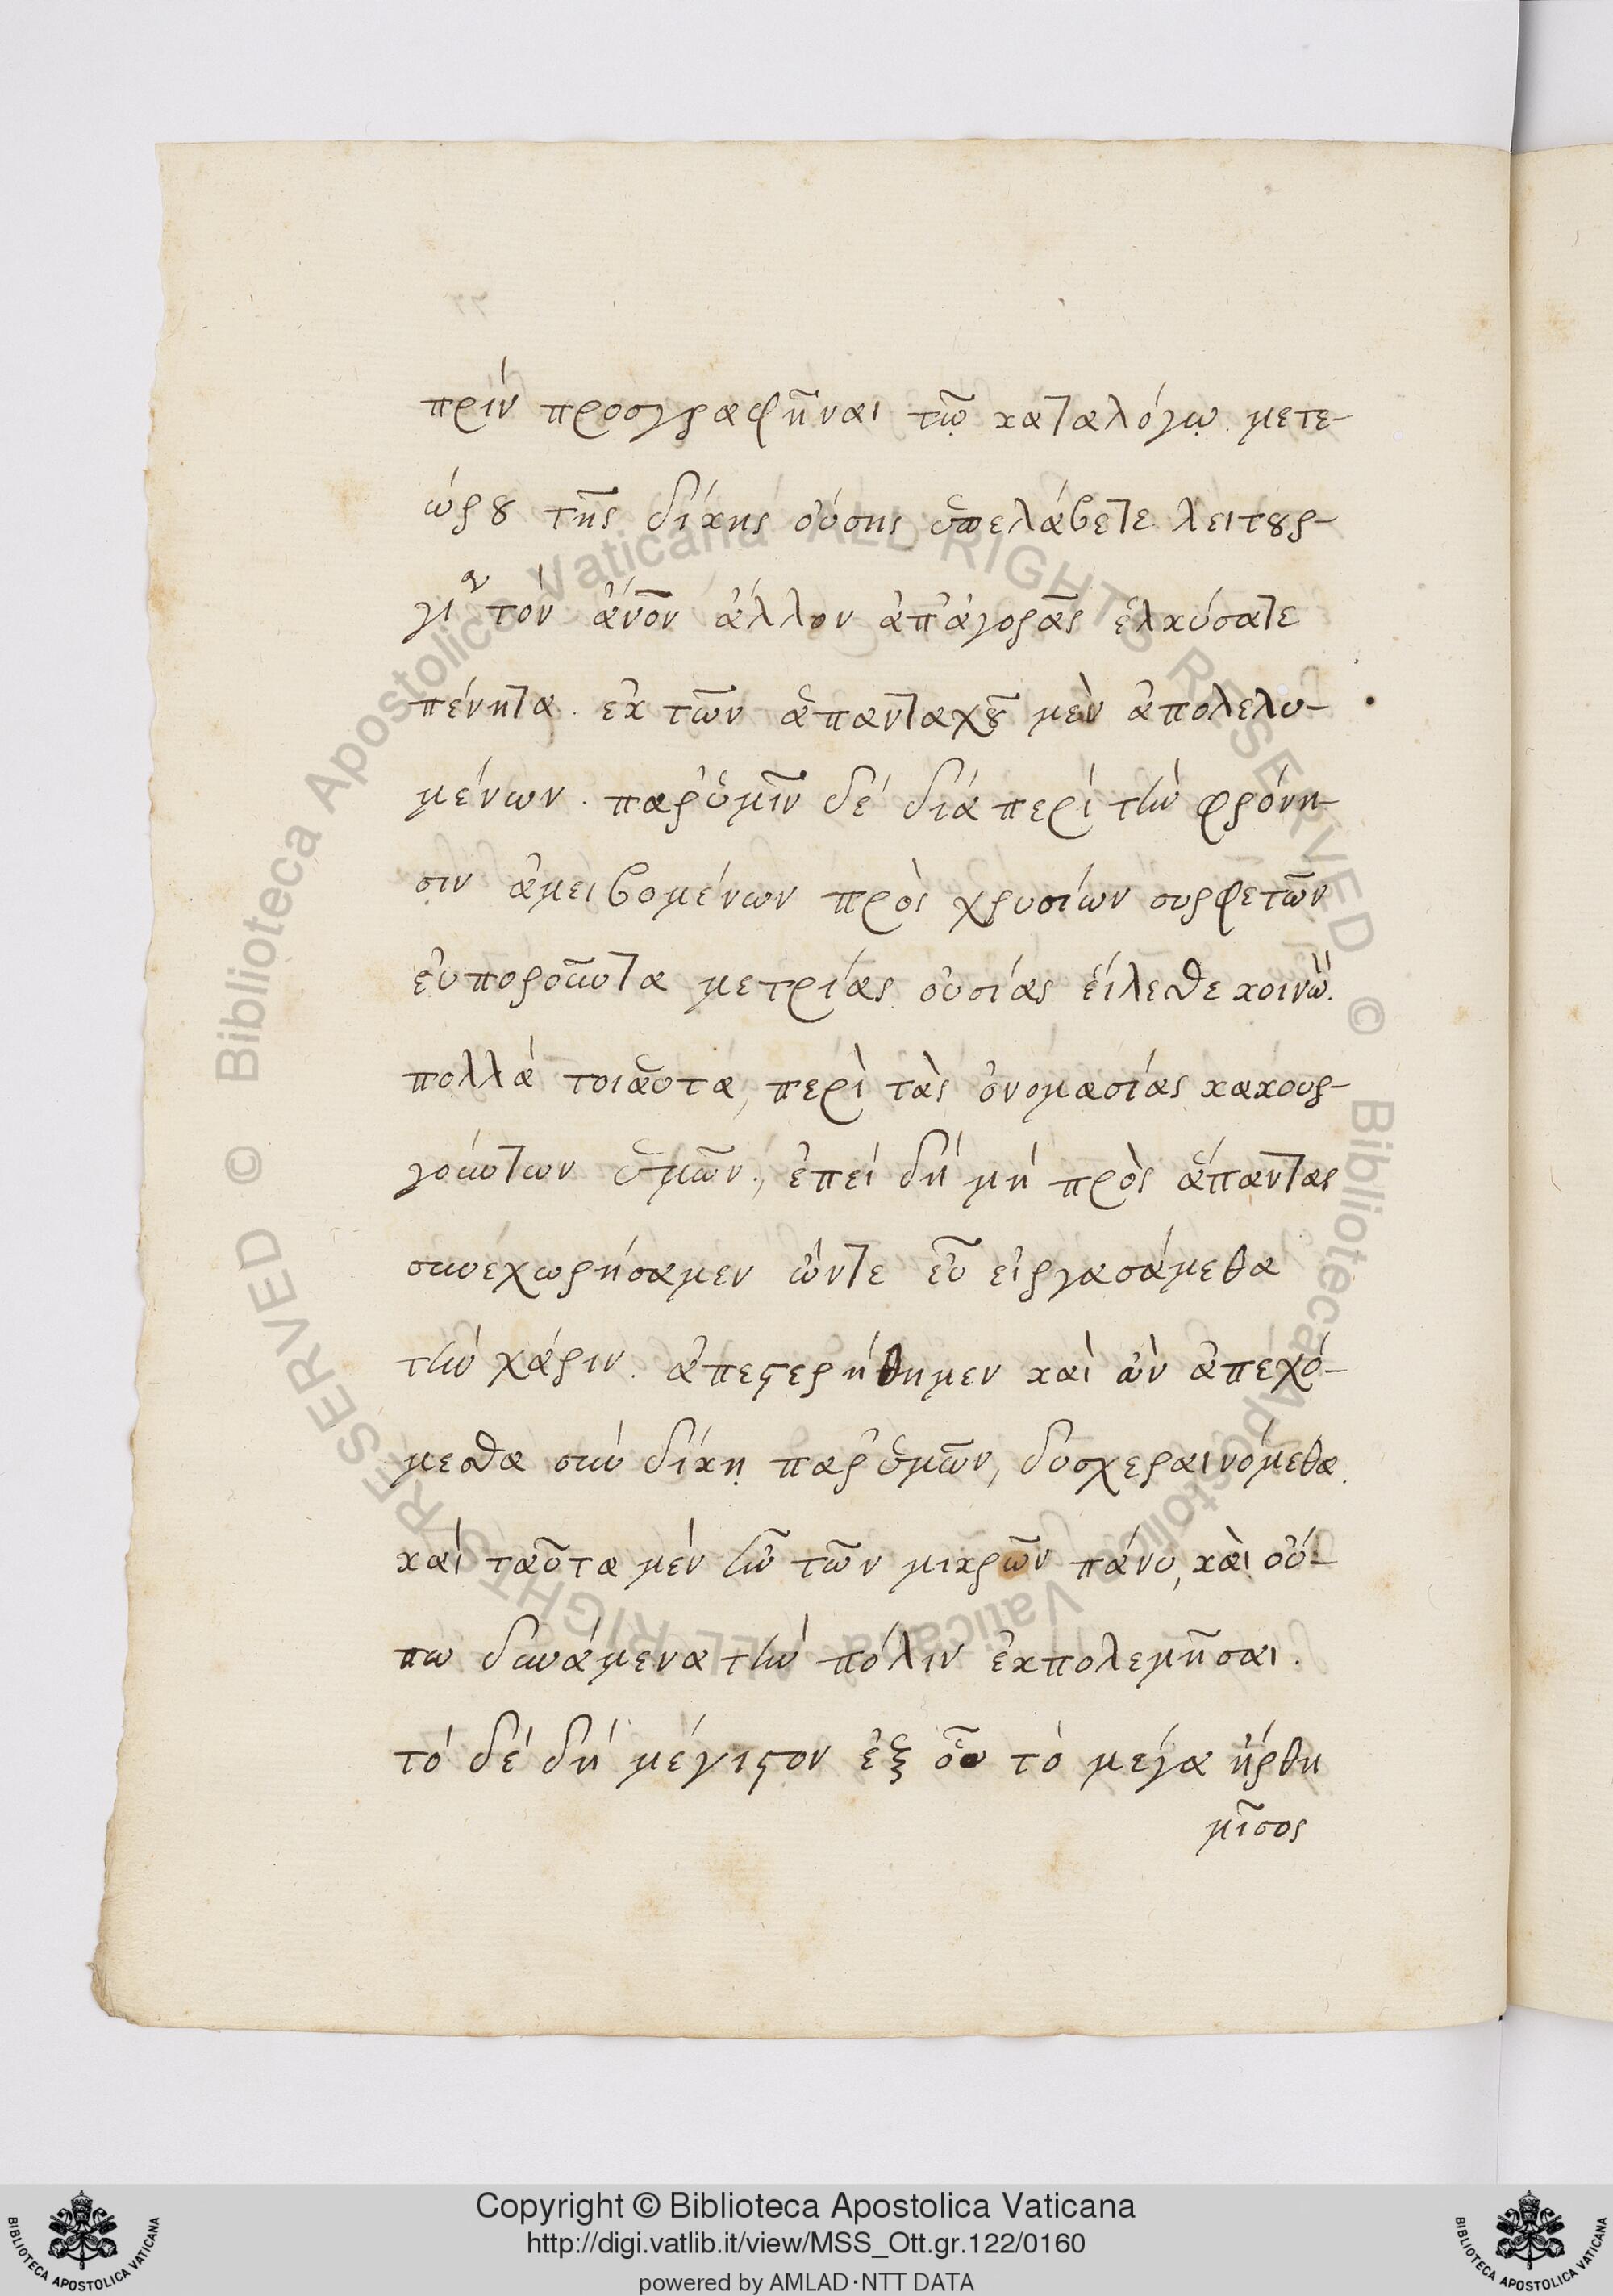 πρὶν προσγραφῆναι τῷ καταλόγῳ. μετε-
ώρου τῆς δίκης οὔσης ὑπελάβετε λειτουρ-
γὶαν τὸν ἄνον ἄλλον ἀπ' ἀγορᾶς εἱλκύσατε
πένητα. ἐκ τῶν ἁπανταχοῦ μὲν ἀπολελυ-
μένων. παρ' ὑμῖν δὲ διὰ περὶ τὴν φρόνη-
σιν ἀμειβομένων πρὸς χρυσίων συρφετῶν
εὐποροῦντα μετρίας οὐσίας εἵλεσθε κοινῶ.
πολλὰ τοιαῦτα, περὶ τὰς ὀνομασίας κακουρ-
γούντων ὑμῶν, ἐπεὶ δὴ μὴ πρὸς ἅπαντας
συνεχωρήσαμεν ὧντε εὖ εἰργασάμεθα
τὴν χάριν. ἀπεστερήθημεν καὶ ὧν ἀπεχό-
μεσθα σὺν δίκῃ παρ' ὑμῶν, δυσχεραινόμεθα.
καὶ ταῦτα μὲν ἦν τῶν μικρῶν πάνυ, καὶ οὔ-
πω δυνάμενα τὴν πόλιν ἐκπολεμῆσαι.
τὸ δὲ δὴ μέγιστον ἐξ οὗ τὸ μέγα ἤρθη
μῖσος
Copyright © Biblioteca Apostolica Vaticana
http://digi.vatlib.it/view/MSS_Ott.gr.122/0160
powered by AMLAD·NTT DATA
© Biblioteca Apostolica Vaticana ALL RIGHTS RESERVED © Biblioteca Apostolica Vaticana ALL RIGHTS RESERVED
BIBLIOTECA APOSTOLICA VATICANA
BIBLIOTECA APOSTOLICA VATICANA